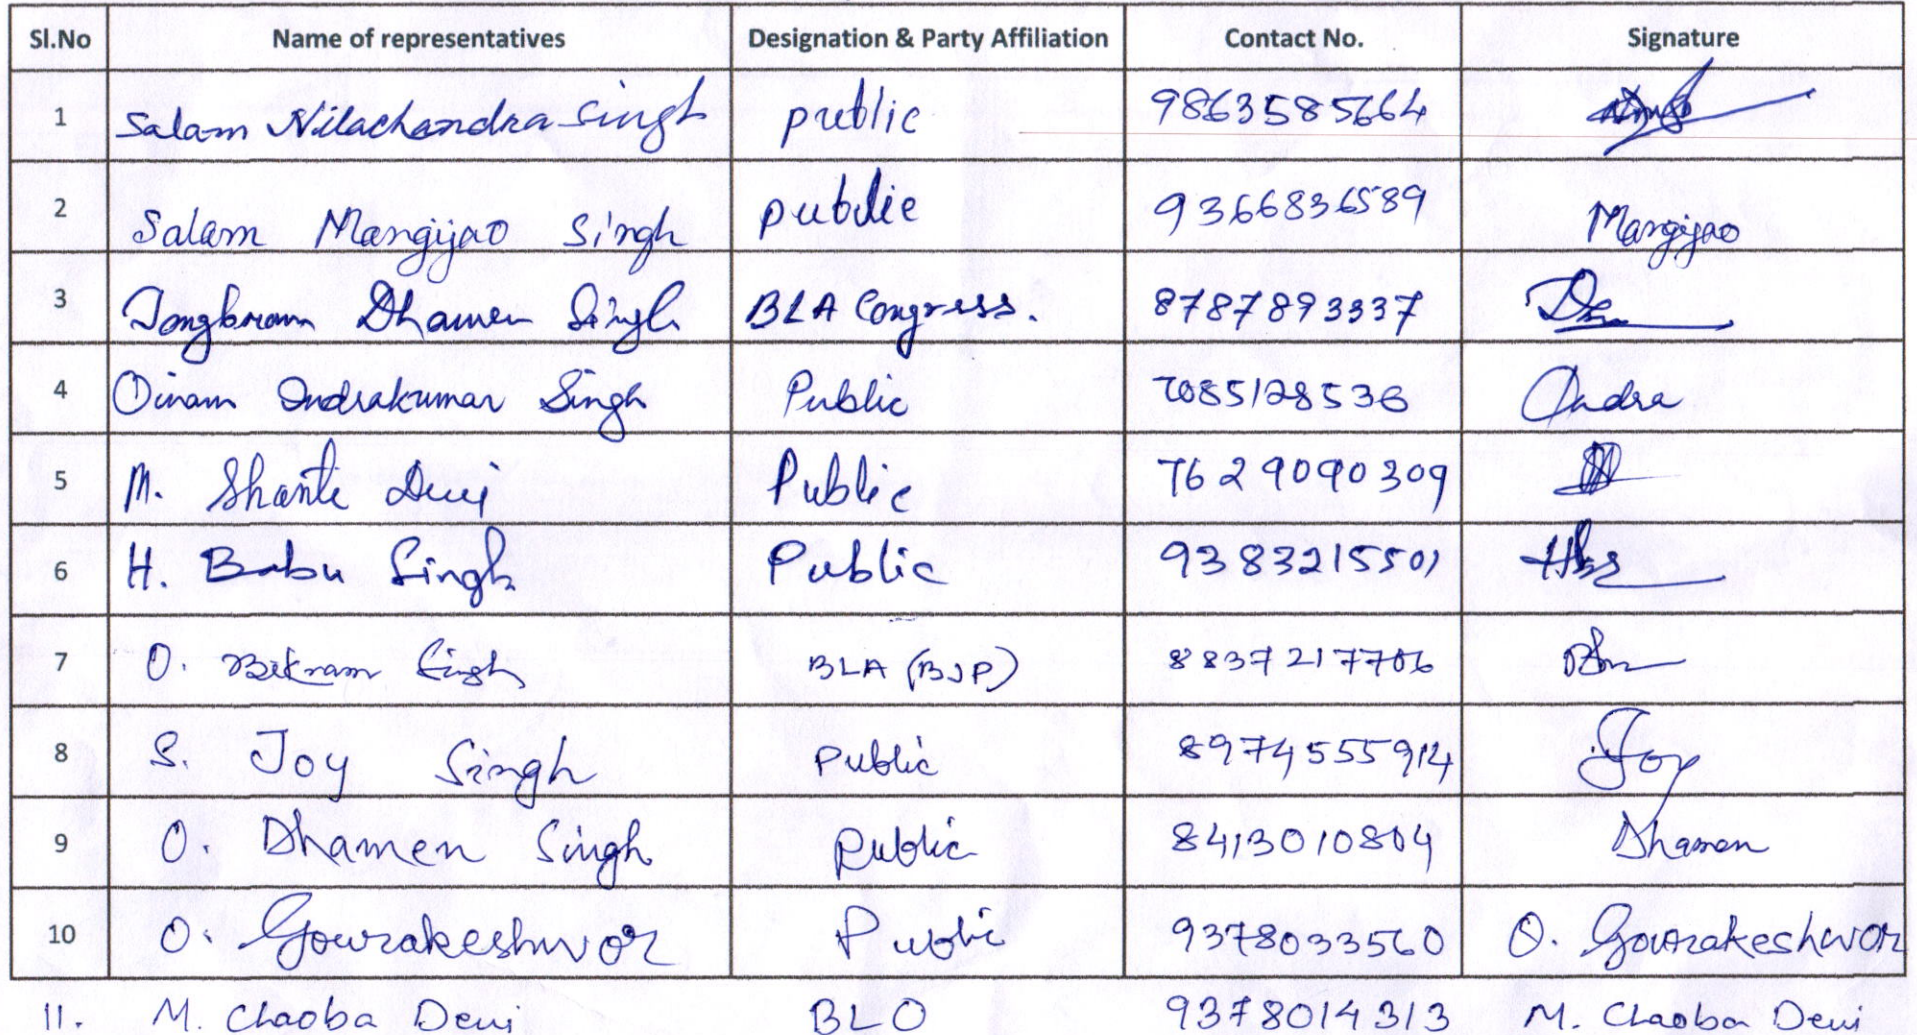 Sl.No Name of representatives Designation & Party Affiliation Contact No. Signature
1 Salam Nilachandra Singh public 9863585664
2 Salam Mangijao Singh public 9366836589 Mangijao
3 Dhamen Singh BLA Congress. 8787893337
4 Oinam Indrakumar Singh Public 7085128536 Indra
5 M. Shanti Devi Public 7629090309
6 H. Babu Singh Public 9383215501
7 O. Bikram Singh BLA (BJP) 8837217706
8 S. Joy Singh Public 8974555914 Joy
9 O. Dhamen Singh Public 8413010804 Dhamen
10 O. Gourakeshwor Public 9378033560 O. Gourakeshwor
11. M. Chaoba Devi BLO 9378014313 M. Chaoba Devi